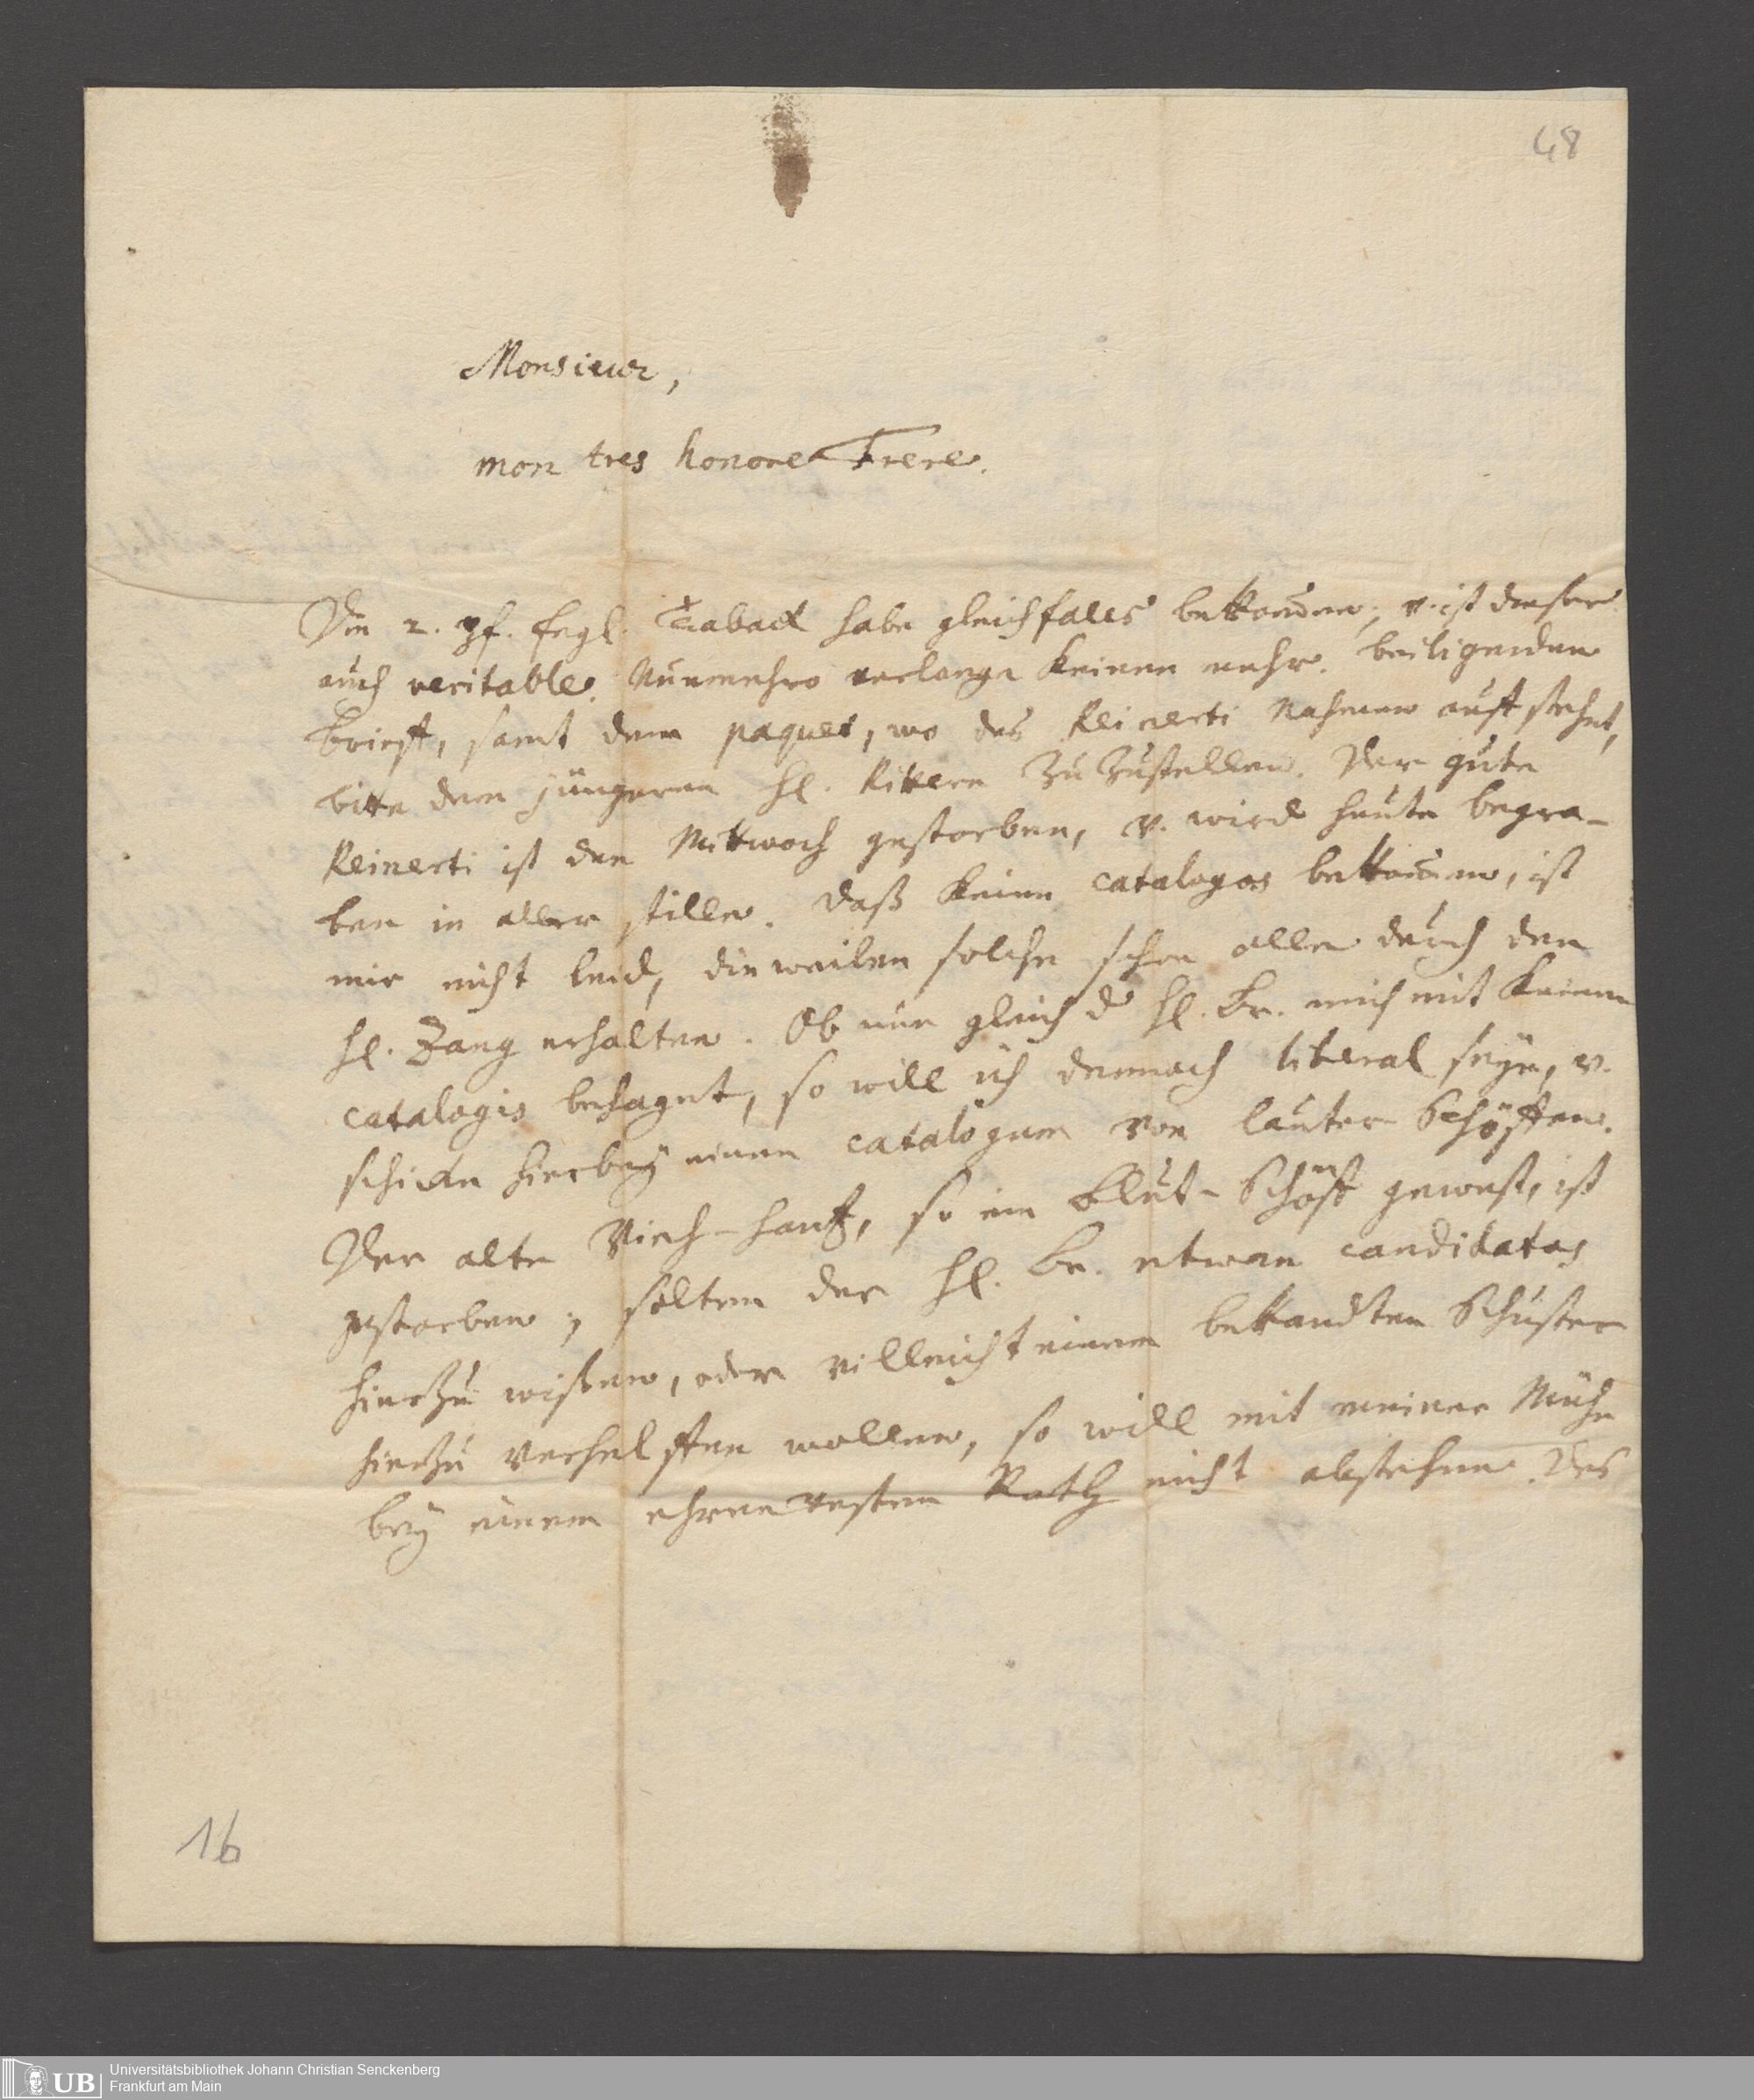 48
Monsieur,
mon tres honoré Frere.
Die 2. pf. Engl. Taback habe gleichfalls bekom̄en, v. ist dieser
auch veritable. Nunmehro verlange keinen mehr. beiligenden
brieff, samt dem paquet, wo des Reinerti Nahmen auff stehet,
bitte dem jüngeren Hl. Rittern zu zustellen. Der gute
Reinerti ist den Mittwoch gestorben, v. wird heute begra-
ben in aller stille. Daß keine catalogos bekom̄en, ist
mir nicht leid, dieweilen solche schon alle durch den
Hl. Zang erhalten. Ob nun gleich d Hl. Br. mich mit keinen
catalogis behaget, so will ich dennoch liberal seyn, v.
schicke hierbey einen catalogum von lauter Schöffen.
Der alte Viech-Hanß, so ein Blut-Schöff gewest, ist
gestorben; solten der Hl. Br. etwan candidatos
hierzu wißen, oder villeicht einem bekandten Schuster
hierzu verhelffen wollen, so will mit meiner Mühe
bey einem ehrenvesten Rath nicht abstehen. Des
16
UB Universitätsbibliothek Johann Christian Senckenberg
Frankfurt am Main